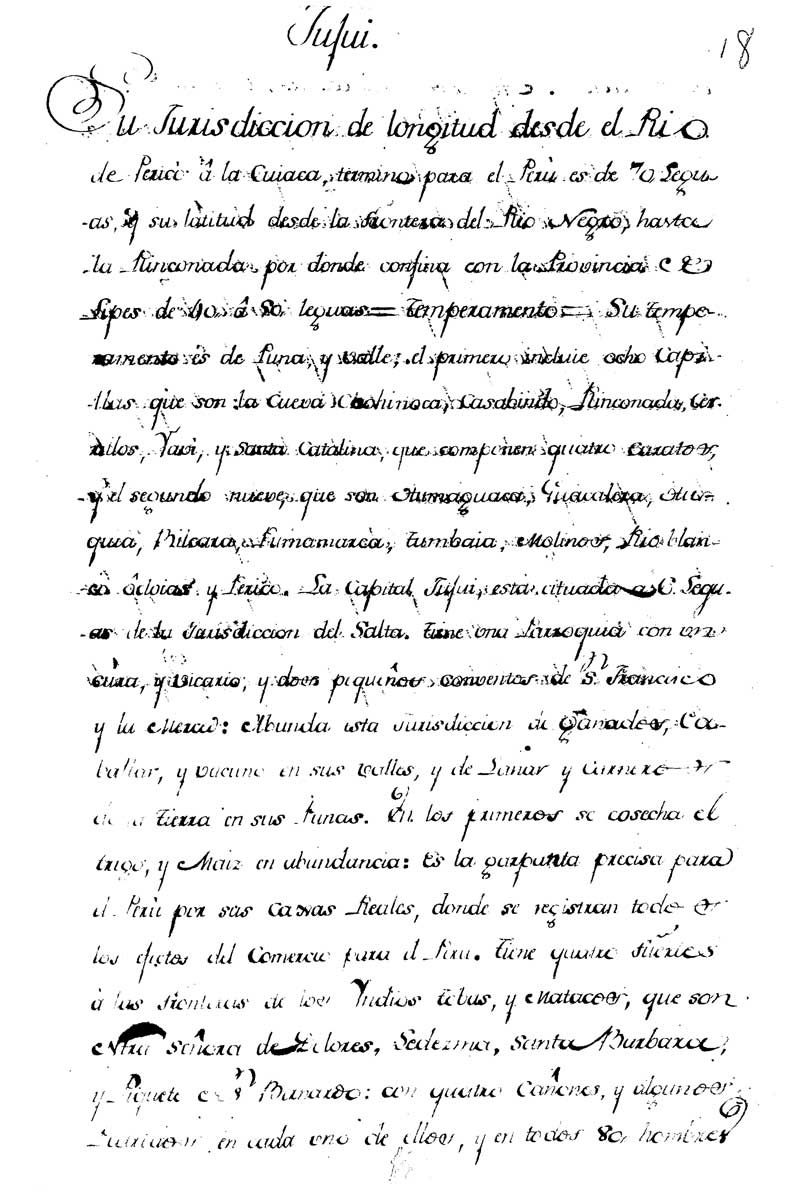 Jujui.
18
Su Jurisdiccion de longitud desde el Rio
de Perico â la Cuiaca, termino para el Perù es de 70 Legu-
-as, y su làtitud desde la frontera del Rio Negro, hasta
la Rinconada por donde confina con la Provincia de
Lipes de 40. â 80 leguas = Temperamento = Su tempe-
ramento és de Puna, y valle; el primero incluie ocho Capi-
llas que son la Cueva Cochinoca, Casabindo, Rinconada, Cer-
rillos, Yavi, y Santa Catalina, que componen quatro Curatos,
y el segundo nueve, que son Omaguaca, Guacalera, Otu-
quia, Tilcara, Purmamarca, Tumbaia, Molinos, Rio blan-
co ôcloias y Perico. La Capital Jujui, esta cituada a 6. Legu-
-as de la Jurisdiccion del Salta. tiene una Parroquia con un
cura, y vicario, y dos piqueños conventos de Sn. Francisco
y la Merced: Abunda esta Jurisdiccion de Ganados, Ca-
ballar, y vacuno en sus valles, y de Lanar y Carneros
de la tierra en sus Punas. En los primeros se cosecha el
trigo, y Maiz en abundancia: es la garganta precisa para
el Perù por sus Caxas Reales, donde se registran todos
los efectos del Comercio para el Peru. tiene quatro fuertes
à las fronteras de los Yndios tobas, y Matacos, que son
Ntra Señora de Dolores, Ledezma, Santa Barbara,
y Piquete de Sn Bernardo: con quatro Cañones, y algunos
en cada uno de ellos, y en todos 80, hombres